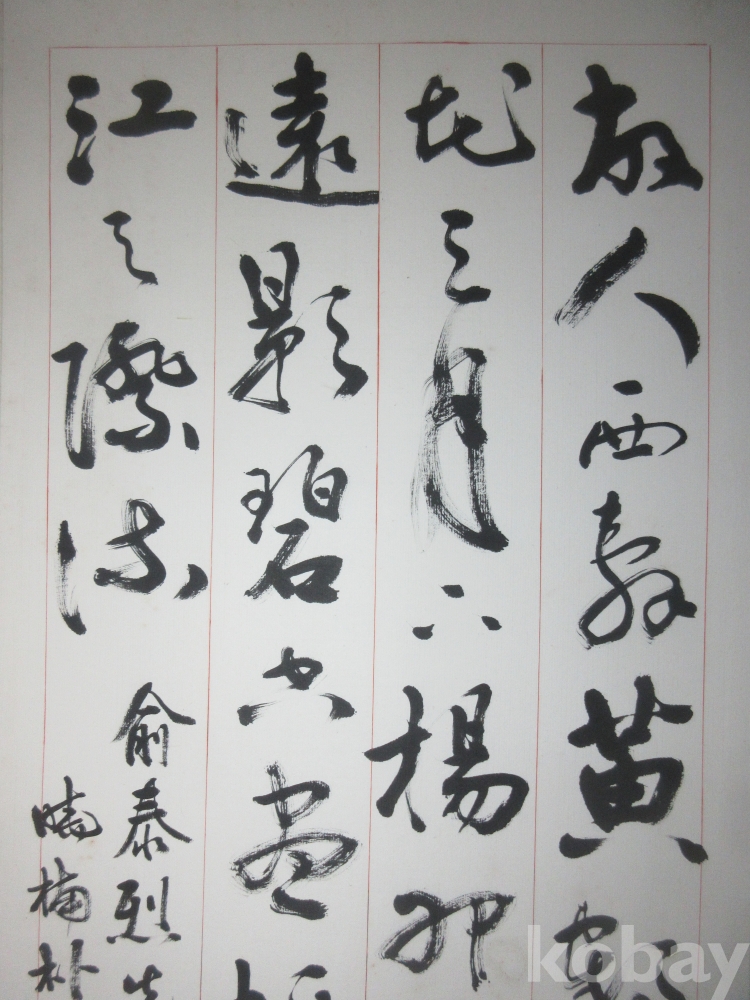 故人西辭黃鶴
花三月下揚州
遠影碧空盡
江天際流
俞泰烈先
曉楠朴
kobay